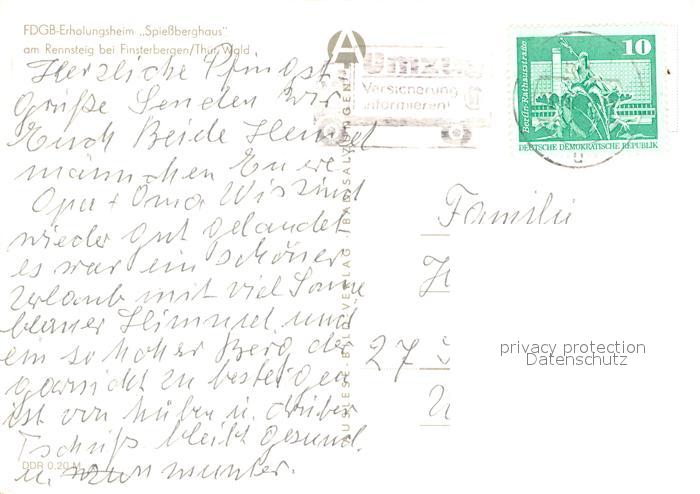 FDGB-Erholungsheim „Spießberghaus"
am Rennsteig bei Finsterbergen/Thür. Wald
Herzliche Pfingst
Grüße Senden wir
Euch Beide Heinzel
männchen Eure
Opa + Oma Wir sind
wieder gut gelandet
es war ein schöner
Urlaub mit viel Sonne
blauer Himmel und
ein so hoher Berg der
garnicht zu besteigen
ist von hüben u. drüber
Tschüß bleibt gesund
u. munter.
DDR 0,20 M
A
AUSLESE-BILD-VERLAG · BAD SALZUNGEN
Umzug
Versicherung
informieren!
10
Berlin·Rathausstraße
DEUTSCHE DEMOKRATISCHE REPUBLIK
Familie
H
27
privacy protection
Datenschutz